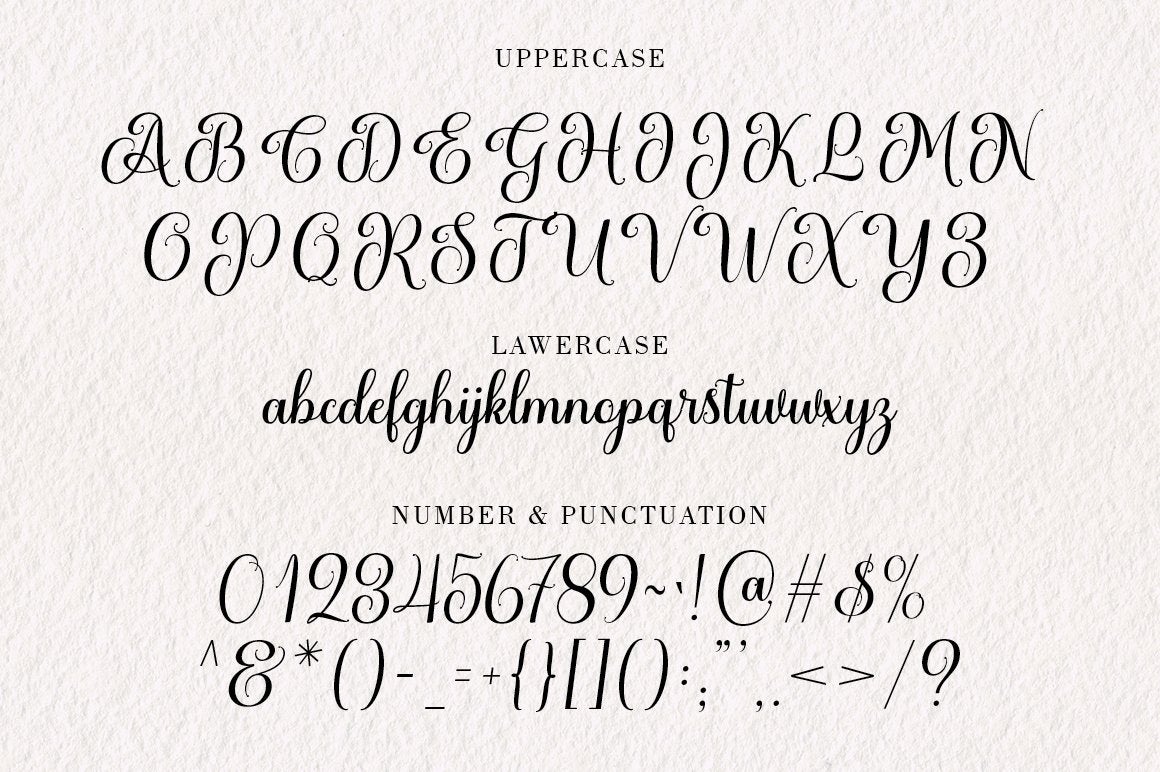 UPPERCASE
A B C D E G H I J K L M N
O P Q R S T U V W X Y Z
LAWERCASE
abcdefghijklmnopqrstuvwxyz
NUMBER & PUNCTUATION
0123456789~`!@#$%
^&*()-_=+{}[]():;"',.<>/?